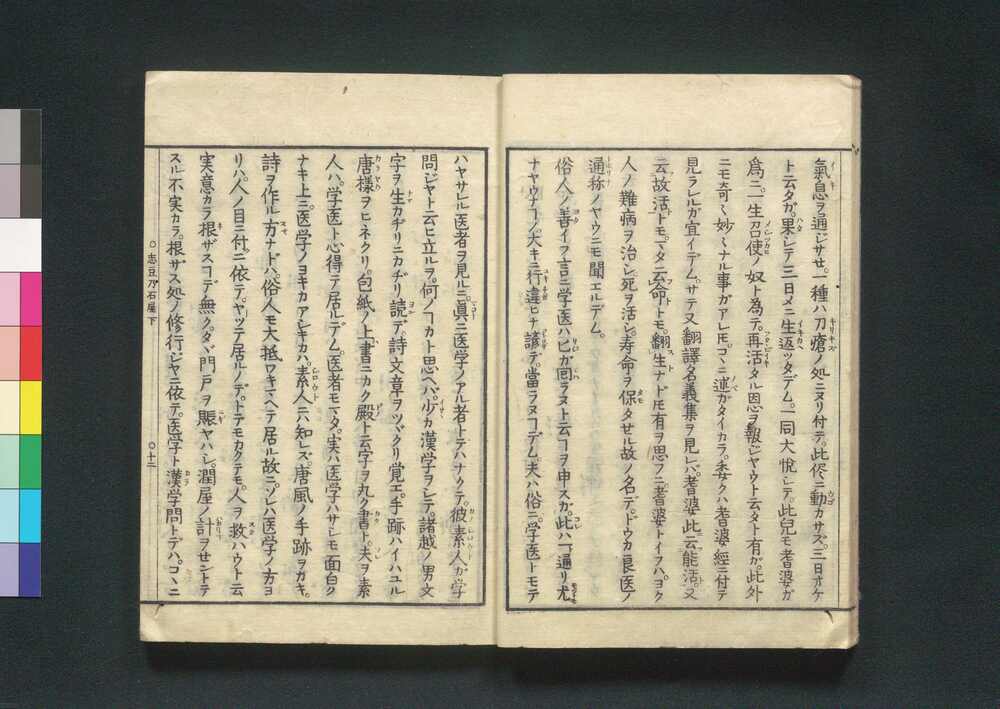 氣息ヲ通ジサセ。一種ハ刀瘡ノ処ニヌリ付テ。此侭ニ動カサズ。三日オケ
ト云タガ。果シテ三日メニ生返ッタデム。一同大悅シテ。此兒モ耆婆ガ
爲ニ。一生召使ノ奴ト為テ。再活タル恩ヲ報ジヤウト云タト有ガ。此外
ニモ奇々妙々ナル事ガアレ𪜈。コヽニ述ガタイカラ。委クハ耆婆經ニ付テ
見ラレルガ宜イデム。サテ又翻譯名義集ヲ見レバ。耆婆此云能活。又
云故活トモ。マタ云命トモ。翻生ナド𪜈有ヲ思フニ。耆婆トイフハ。ヨク
人ノ難病ヲ治シ。死ヲ活シ。寿命ヲ保タせル故ノ名デ。ドウカ良医ノ
通称ノヤウニモ聞エルデム。
俗人ノ善イフ言ニ。学医ハヒガ回ラヌト云コヲ申スガ。此ハ一通リ尤
ナヤウナコノ。大キニ行違ヒナ諺デ。當ラヌコデム。夫ハ俗ニ学医トモテ
ハヤサルル医者ヲ見ルニ。眞ニ医学ノアル者トテハナクテ。彼素人ガ学
問ジヤト云ヒ立ルヲ。何ノコカト思ヘバ。少カ漢学ヲシテ。諸越ノ男文
字ヲ生カヂリニカヂリ。読デ。詩文章ヲツヾクリ覚エ。手跡ハイハユル
唐様ヲヒネクリ。包紙ノ上書ニカク殿ト云字ヲ丸ク書ト。夫ヲ素
人ハ。学医ト心得テ居ルデム。医者モマタ。実ハ医学ハサシモ面白ク
ナキ上ニ。医学ノヨキカアシキカハ。素人ニハ知レズ。唐風ノ手跡ヲカキ。
詩ヲ作ル方ナドハ。俗人モ大抵ワキマヘテ居ル故ニ。ソレハ医学ノ方ヨ
リハ。人ノ目ニ付ニ依テ。ヤッテ居ルノデ。トテモカクテモ。人ヲ救ハウト云
実意カラ根ザスコデ無ク。タヾ門戸ヲ賑ヤハシ。潤屋ノ計ヲせントテ
スル不実カラ。根ザス処ノ修行ジヤニ依テ。医学ト漢学問トデハ。コヽニ
志豆乃石屋下
十二